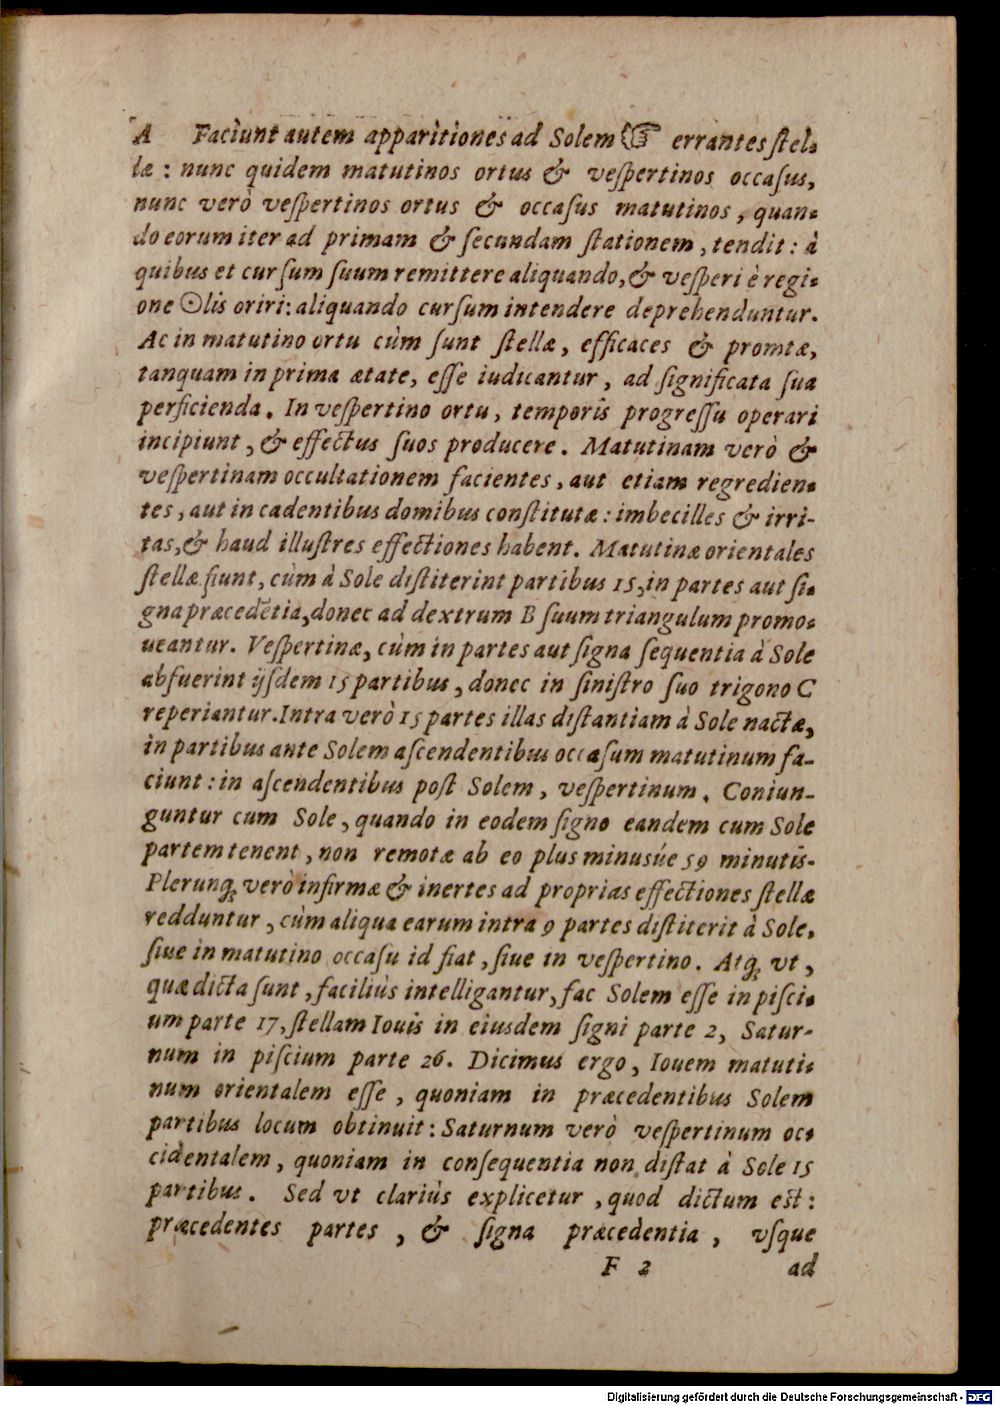 A Faciunt autem apparitiones ad Solem ☞ errantes ſtel-
læ : nunc quidem matutinos ortus & veſpertinos occaſus,
nunc verò veſpertinos ortus & occaſus matutinos, quan-
do eorum iter ad primam & ſecundam ſtationem, tendit: à
quibus et curſum ſuum remittere aliquando, & veſperi è regi-
one ☉lis oriri: aliquando curſum intendere deprehenduntur.
Ac in matutino ortu cùm ſunt ſtellæ, efficaces & promtæ,
tanquam in prima ætate, eſſe iudicantur, ad ſignificata ſua
perficienda. In veſpertino ortu, temporis progreſſu operari
incipiunt, & effectus ſuos producere. Matutinam verò &
veſpertinam occultationem facientes, aut etiam regredien-
tes, aut in cadentibus domibus conſtitutæ: imbecilles & irri-
tas, & haud illuſtres effectiones habent. Matutinæ orientales
ſtellæ fiunt, cùm à Sole diſtiterint partibus 15, in partes aut ſi-
gna præcedẽtia, donec ad dextrum B ſuum triangulum promo-
ueantur. Veſpertinæ, cùm in partes aut ſigna ſequentia à Sole
abfuerint ijſdem 15 partibus, donec in ſiniſtro ſuo trigono C
reperiantur. Intra verò 15 partes illas diſtantiam à Sole nactæ,
in partibus ante Solem aſcendentibus occaſum matutinum fa-
ciunt: in aſcendentibus poſt Solem, veſpertinum. Coniun-
guntur cum Sole, quando in eodem ſigno eandem cum Sole
partem tenent, non remotæ ab eo plus minusúe 59 minutis.
Plerunq; verò infirmæ & inertes ad proprias effectiones ſtellæ
redduntur, cùm aliqua earum intra 9 partes diſtiterit à Sole,
ſiue in matutino occaſu id fiat, ſiue in veſpertino. Atq; vt,
quæ dicta ſunt, faciliùs intelligantur, fac Solem eſſe in piſci-
um parte 17, ſtellam Iouis in eiusdem ſigni parte 2, Satur-
num in piſcium parte 26. Dicimus ergo, Iouem matuti-
num orientalem eſſe, quoniam in præcedentibus Solem
partibus locum obtinuit: Saturnum verò veſpertinum oc-
cidentalem, quoniam in conſequentia non diſtat à Sole 15
partibus. Sed vt clariùs explicetur, quod dictum est:
præcedentes partes, & ſigna præcedentia, vſque
F 2 ad
Digitalisierung gefördert durch die Deutsche Forschungsgemeinschaft - DFG